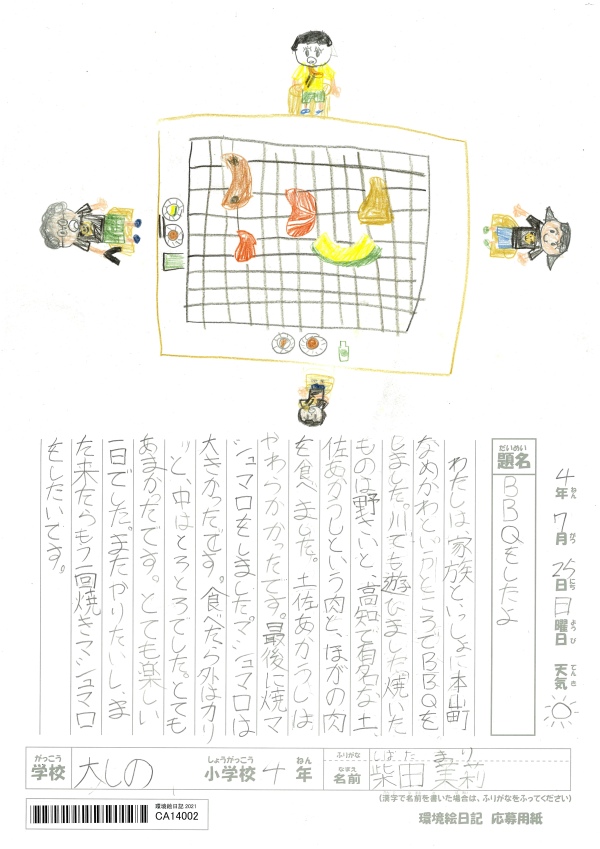 4年 7月 25日 日曜日 天気
ねん がつ にち ようび てんき
だいめい
題名
BBQをしたよ
わたしは、家族といっしょに本山町
なめかわというところでBBQを
しました。川でも遊びました。焼いた
ものは野さいと、高知で有名な土、
佐あかうしという肉と、ほかの肉
を食べました。土佐あかうしは、
やわらかかったです。最後に焼マ
シュマロをしました。マシュマロは
大きかったです。食べたら外はカリ
ッと、中はとろとろでした。とても
あまかったです。とても楽しい
一日でした。またやりたいし、ま
た来たらもう一回焼きマシュマロ
をしたいです。
がっこう しょうがっこう ねん
学校 大しの 小学校 4 年
ふりがな しばた まり
なまえ
名前 柴田 茉莉
(漢字で名前を書いた場合は、ふりがなをふってください)
環境絵日記 2021
CA14002
環境絵日記 応募用紙